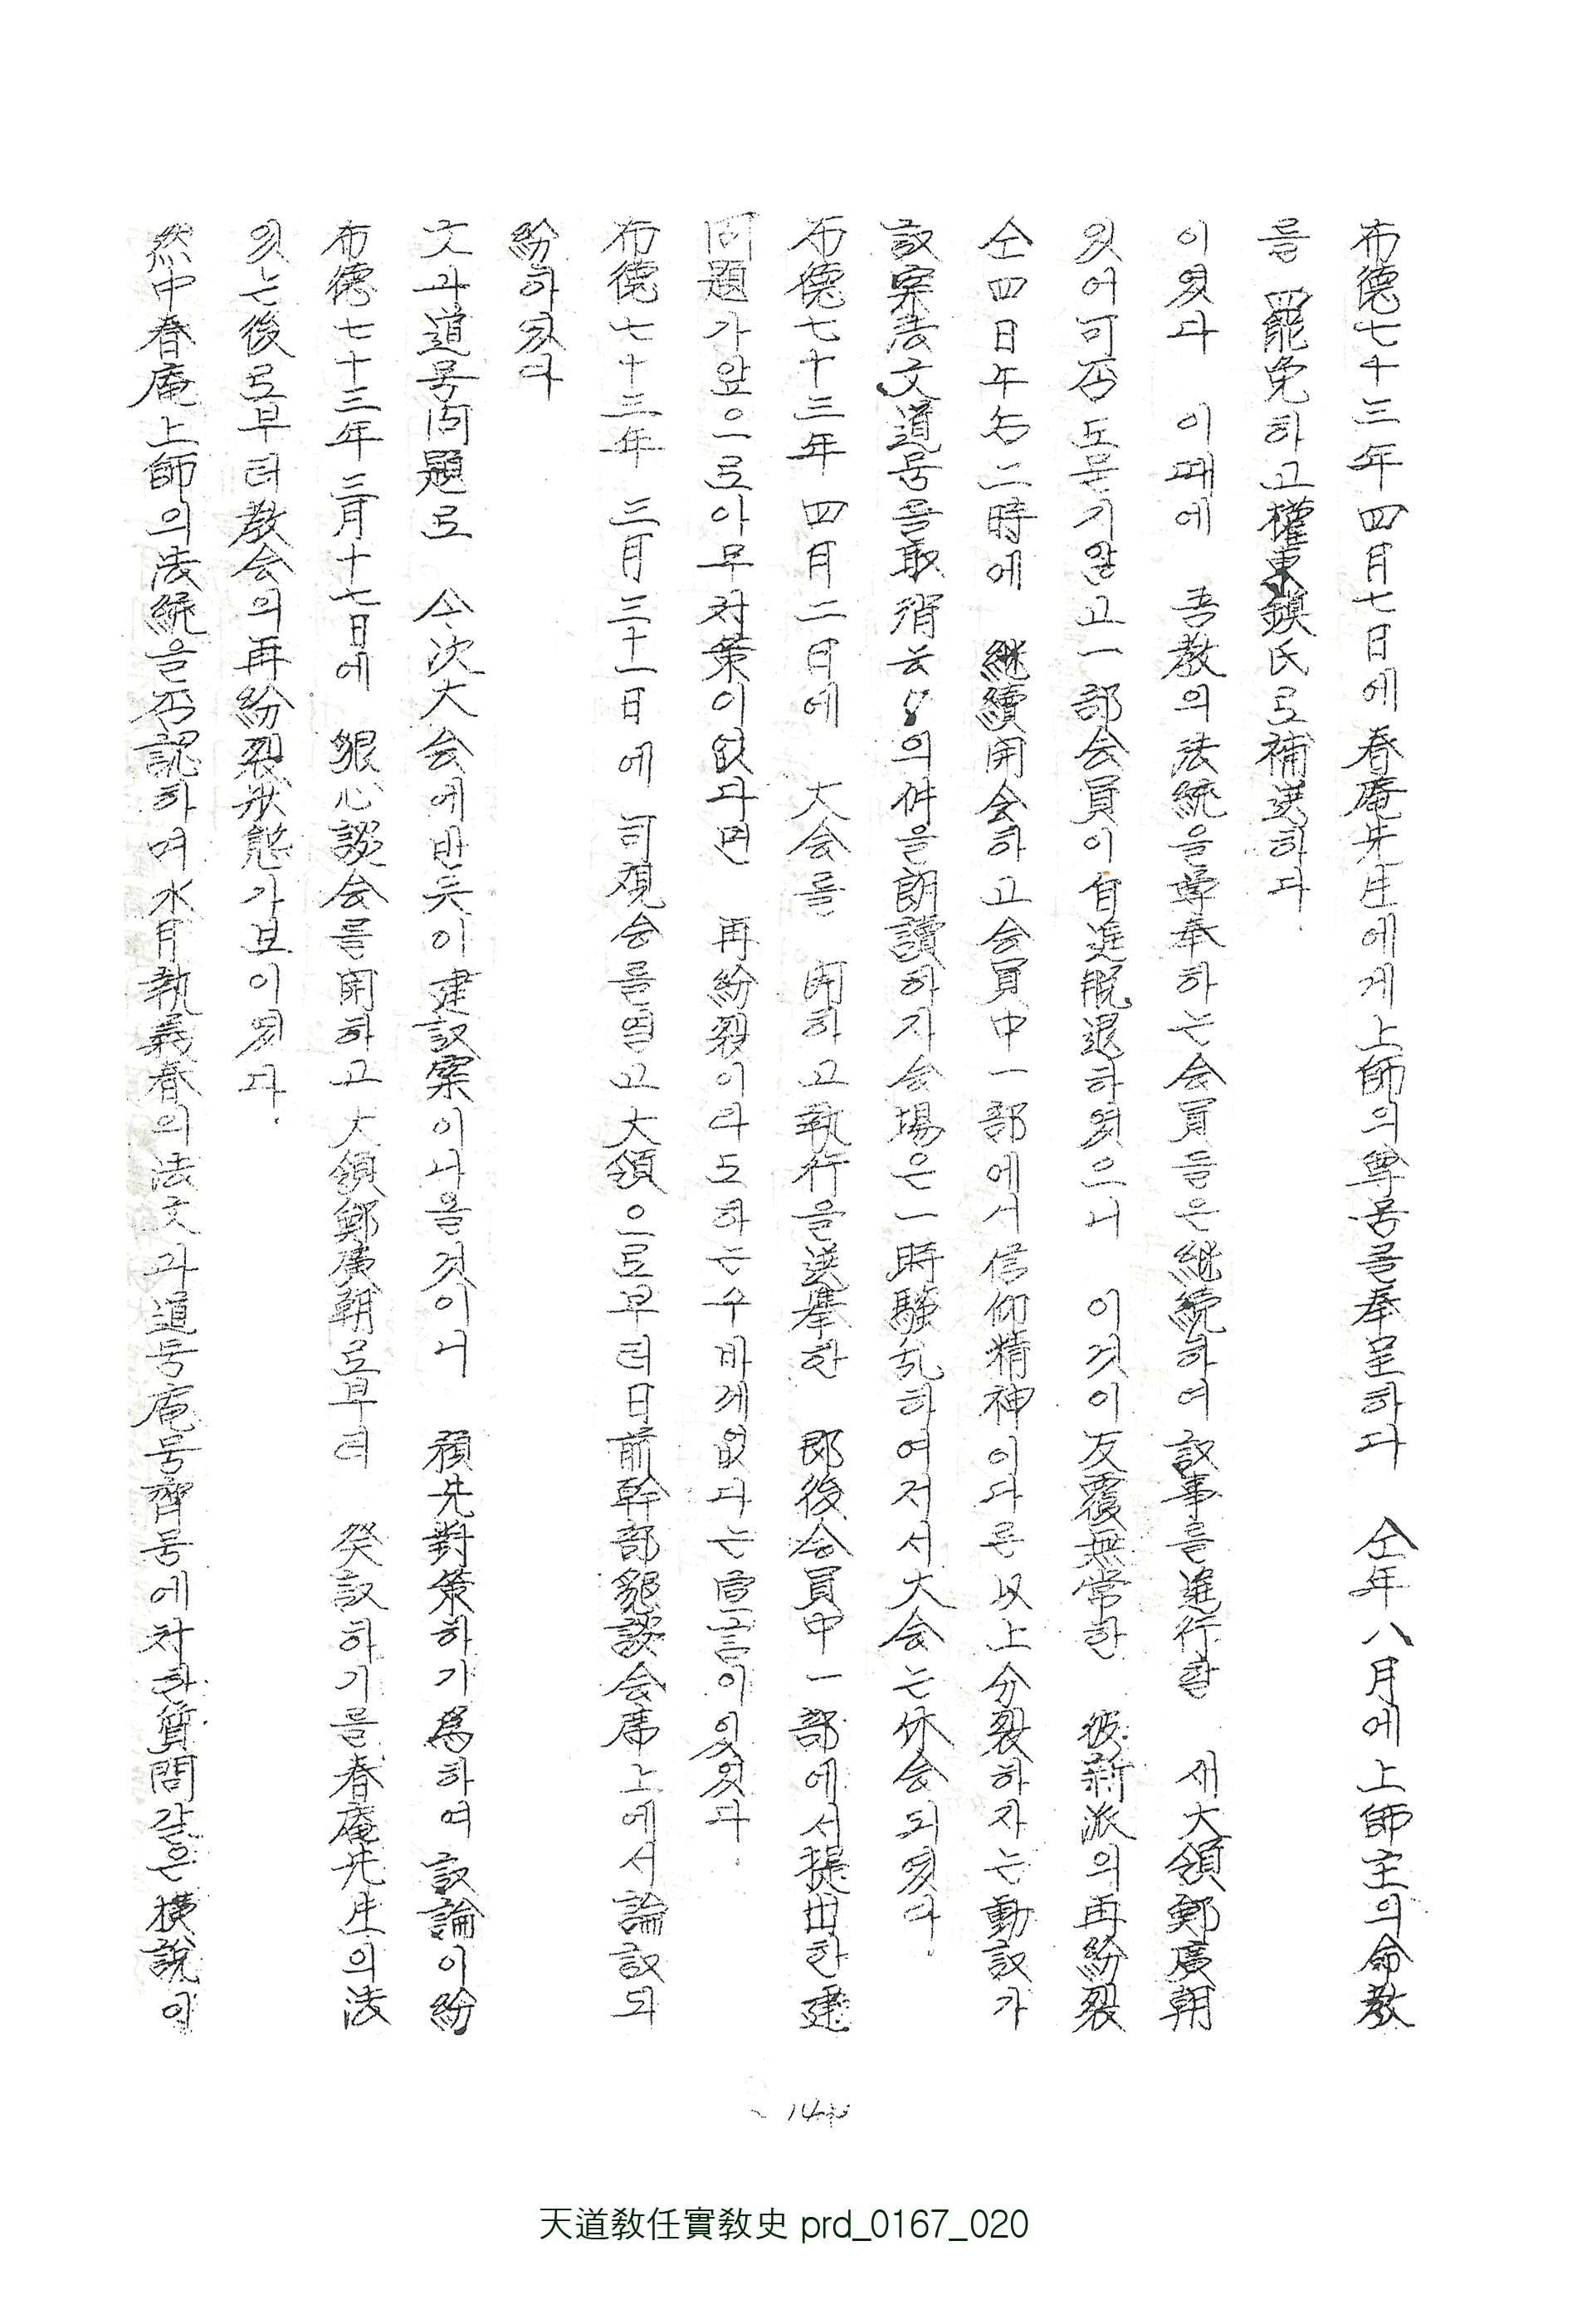 然中春庵上師의法統을否認하며水月執義春의法文과道号庵号齊号에対한質問같은橫說이
잇는後로부터教会의再紛裂狀態가보이엿다.
布德七十三年 三月十七日에 懇心談会를開하고大領鄭廣朝로부터 発議하기를春庵先生의法
文과道号問題로 今次大会에반듯이建議案이나올것이니 預先對策하기爲하여議論이紛
紛하엿다
布德七十三年 三月三十一日에 司視会를열고大領으로부터日前幹部懇談会席上에서論議되
問題가앞으로아무対策이없다면 再紛裂이라도하는수바께없다는宣言이잇엇다.
布德七十三年 四月二日에 大会를 開하고執行을選擧한 即後会員中一部에서提出한建
議案法文道号을取消云々의件을朗讀하자会場은一時騷乱하여저서大会는休会되엿다.
仝四日午后二時에 継續開会하고会員中一部에서信仰精神이다른以上分裂하자는動議가
잇어可否도묻기않고一部会員이自進脫退하엿으니 이것이反覆無常한 彼新派의再紛裂
이엿다 이때에 吾教의法統을尊奉하는会員들은継続하여議事를進行할 새大領鄭廣朝
를 罷免하고權東鎮氏로補選하다.
布德七十三年 四月七日에春庵先生에게上師의尊号를奉呈하다 仝年八月에上師主의命教
14
天道教任實教史 prd_0167_020